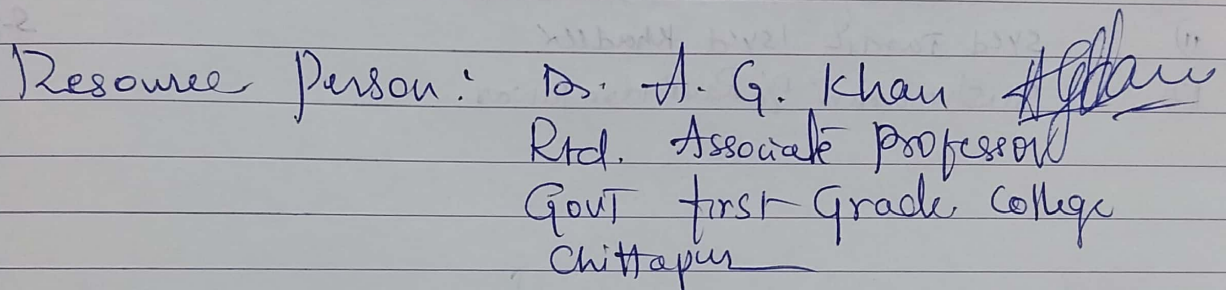 Resource Person: Dr. A. G. Khan AGKhan
Rtd. Associate Professor
Govt first Grade College
Chittapur